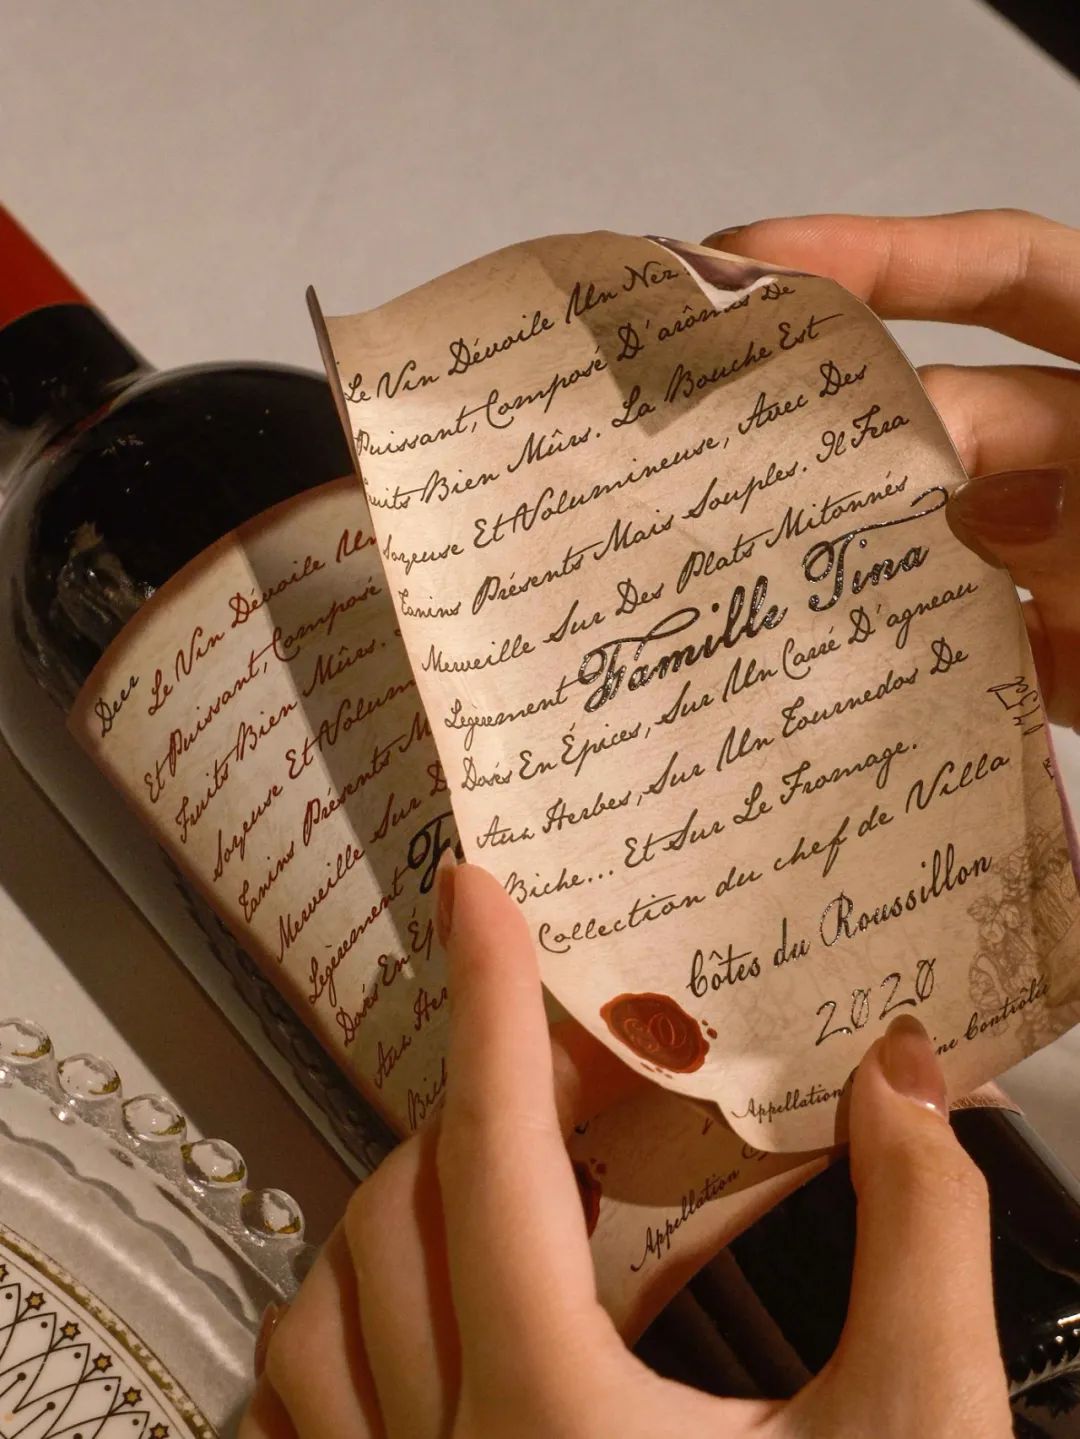 Le Vin Dévoile Un Nez
Puissant, Composé D'arômes De
Fruits Bien Mûrs. La Bouche Est
Soyeuse Et Volumineuse, Avec Des
Tanins Présents Mais Souples. Il Fera
Merveille Sur Des Plats Mitonnés
Légèrement
Famille Tina
Dosés En Épices, Sur Un Carré D'agneau
Aux Herbes, Sur Un Tournedos De
Biche... Et Sur Le Fromage.
Collection du chef de Villa
Côtes du Roussillon
2020
Appellation ine Contrôlée
Deer
Le Vin Dévoile Un
Et Puissant, Composé
Fruits Bien Mûrs.
Soyeuse Et Volum
Tanins Présents M
Merveille Sur D
Légèrement
F
Dosés En Ép
Aux Her
Bic
Appellation